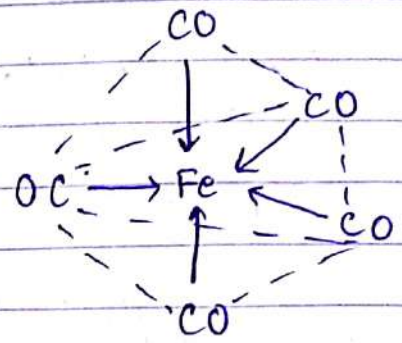 CO
CO
OC
Fe
CO
CO